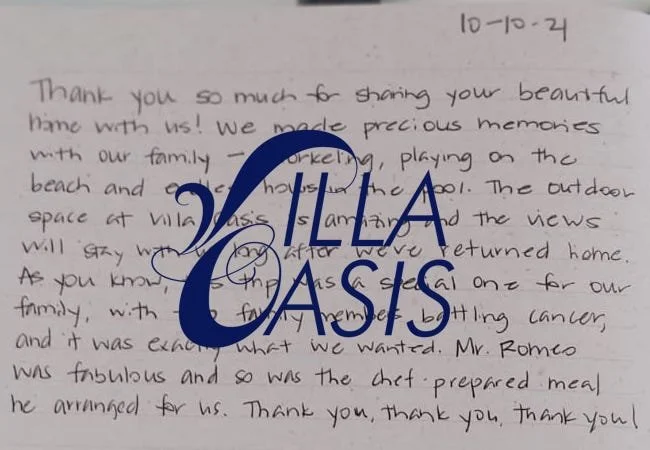 10-10-21
Thank you so much for sharing your beautiful
home with us! We made precious memories
with our family - snorkeling, playing on the
beach and endless hours in the pool. The outdoor
space at Villa Oasis is amazing and the views
will stay with us long after we've returned home.
As you know, this trip was a special one for our
family, with family member battling cancer,
and it was exactly what we wanted. Mr. Romeo
was fabulous and so was the chef-prepared meal
he arranged for us. Thank you, thank you, thank you!
VILLA
OASIS